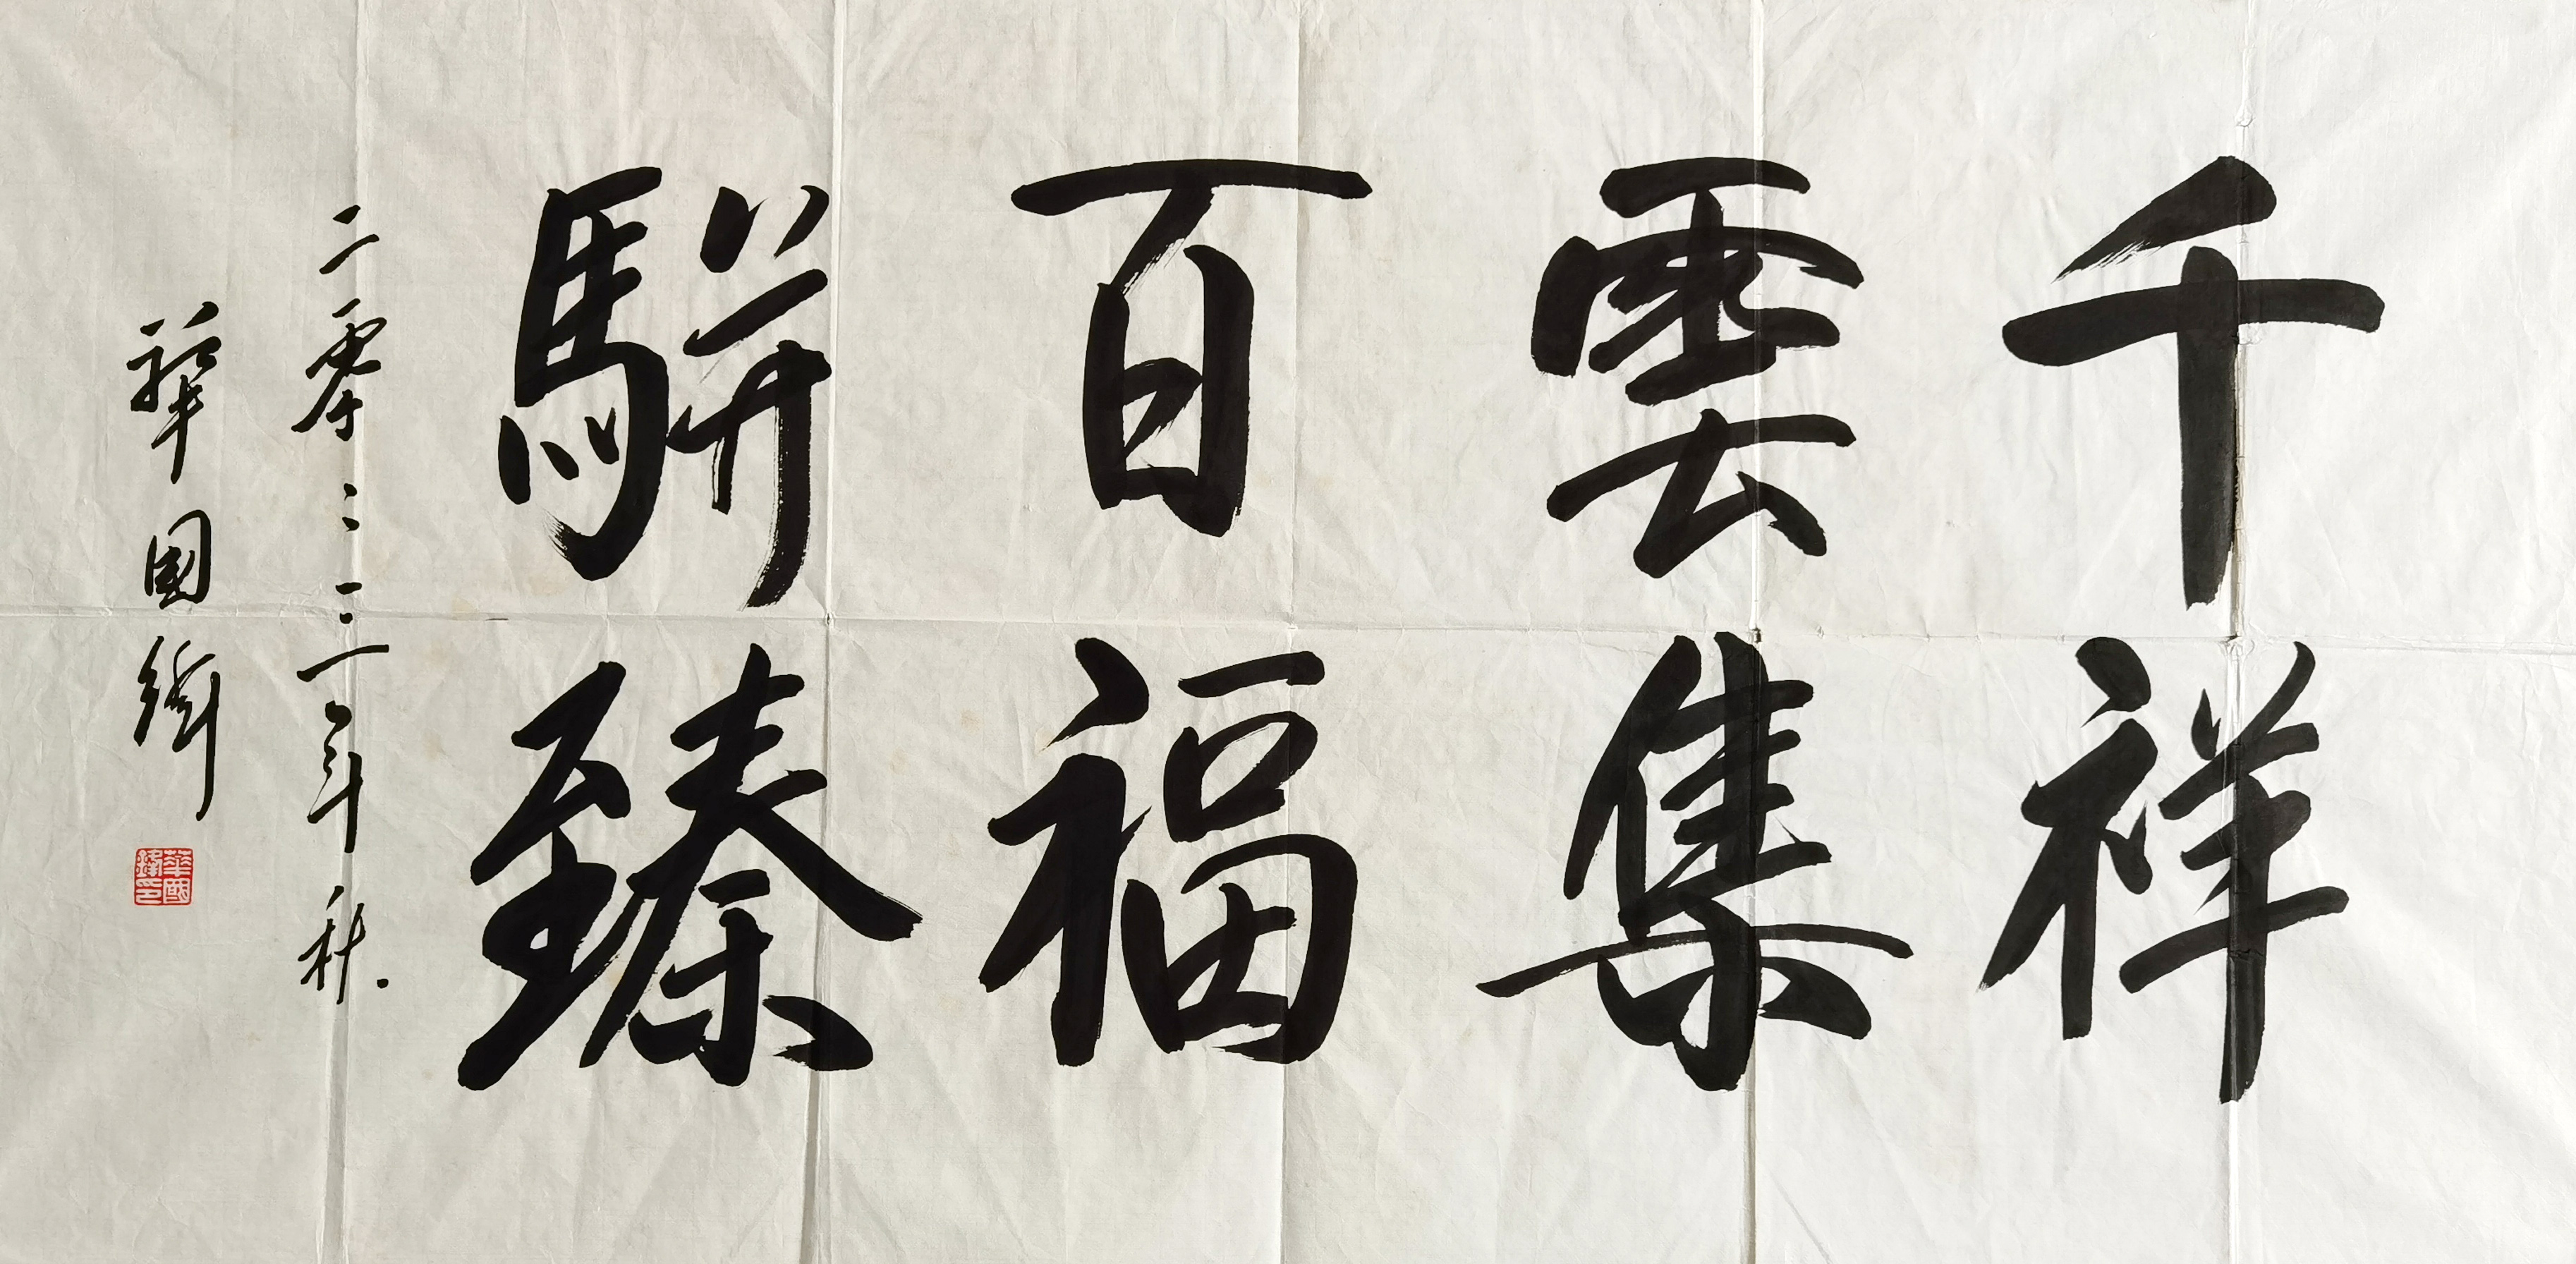 千祥
雲集
百福
駢臻
二零二三年秋
華國
華國
印